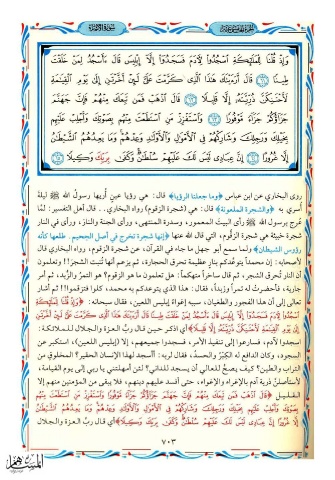 سورة الإسراء
وَإِذْ قُلْنَا لِلْمَلَٰٓئِكَةِ ٱسْجُدُوا۟ لِـَٔادَمَ فَسَجَدُوٓا۟ إِلَّآ إِبْلِيسَ قَالَ ءَأَسْجُدُ لِمَنْ خَلَقْتَ
طِينًا ٦١ قَالَ أَرَءَيْتَكَ هَٰذَا ٱلَّذِى كَرَّمْتَ عَلَىَّ لَئِنْ أَخَّرْتَنِ إِلَىٰ يَوْمِ ٱلْقِيَٰمَةِ
لَأَحْتَنِكَنَّ ذُرِّيَّتَهُۥٓ إِلَّا قَلِيلًا ٦٢ قَالَ ٱذْهَبْ فَمَن تَبِعَكَ مِنْهُمْ فَإِنَّ جَهَنَّمَ
جَزَآؤُكُمْ جَزَآءً مَّوْفُورًا ٦٣ وَٱسْتَفْزِزْ مَنِ ٱسْتَطَعْتَ مِنْهُم بِصَوْتِكَ وَأَجْلِبْ عَلَيْهِم
بِخَيْلِكَ وَرَجِلِكَ وَشَارِكْهُمْ فِى ٱلْأَمْوَٰلِ وَٱلْأَوْلَٰدِ وَعِدْهُمْ وَمَا يَعِدُهُمُ ٱلشَّيْطَٰنُ
إِلَّا غُرُورًا ٦٤ إِنَّ عِبَادِى لَيْسَ لَكَ عَلَيْهِمْ سُلْطَٰنٌ وَكَفَىٰ بِرَبِّكَ وَكِيلًا ٦٥
روى البخاري عن ابن عباس ﴿وما جعلنا الرؤيا﴾ قال: هي رؤيا عين أُريها رسول الله ﷺ ليلة
أسري به ﴿والشجرة الملعونة﴾ قال: هي (شجرة الزقوم) رواه البخاري.. قال أهل التفسير: لمّا
عُرج برسول الله ﷺ رأى البيت المعمور، وسدرة المنتهى، ورأى الجنة والنار، ورأى في النار
شجرة خبيثة هي شجرة الزقوم، التي قال الله عنها ﴿إنها شجرة تخرج في أصل الجحيم طلعها كأنه
رؤوس الشياطين﴾ ولما سمع أبو جهل ما جاء في القرآن، عن شجرة الزقوم، قال
لأصحابه: إن محمداً يتوعدكم بنارٍ عظيمة تحرق الحجارة، ثم يزعم أنها تُنبت الشجر!! وتعلمون
أن النار تُحرق الشجر، ثم قال ساخراً متهكماً: هل تعلمون ما هو الزقوم؟ هو التمر والزُّبد، ثم أمر
جارية، فأحضرت له تمراً وزبداً، فقال: هذا الذي يتوعدكم به محمد، كلوا فتزقموا!! ثم أشار
تعالى إلى أن هذا الفجور والطغيان، سببه إغواء إبليس اللعين، فقال سبحانه: ﴿وإذ قلنا للملائكة
﴾ أي اذكر حين قال ربُّ العزة والجلال للملائكة:
اسجدوا لآدم، فسارعوا إلى تنفيذ الأمر، فسجدوا جميعهم، إلا (إبليس اللعين)، استكبر عن
السجود، وكان الدافع له الكِبْر والحسدُ، فقال لربه: أأسجد لهذا الإنسان الحقير؟ المخلوقِ من
التراب والطين؟ كيف يصحُّ للعالي أن يسجد للداني؟ لئن أمهلتني يا ربي إلى يوم القيامة،
لأستأصلنَّ ذرية آدم بالإغراء والإغواء، حتى أفسد عليهم دينهم، فلا يبقى من المؤمنين منهم إلا
القليل ﴿قال اذهب فمن تبعك منهم فإن جهنم جزاؤكم جزاء موفورا واستفزز من استطعت منهم
بصوتك وأجلب عليهم بخيلك ورجلك وشاركهم في الأموال والأولاد وعدهم وما يعدهم الشيطان
إلا غرورا إن عبادي ليس لك عليهم سلطان وكفى بربك وكيلا﴾ أي قال ربُّ العزة والجلال
٧٠٣